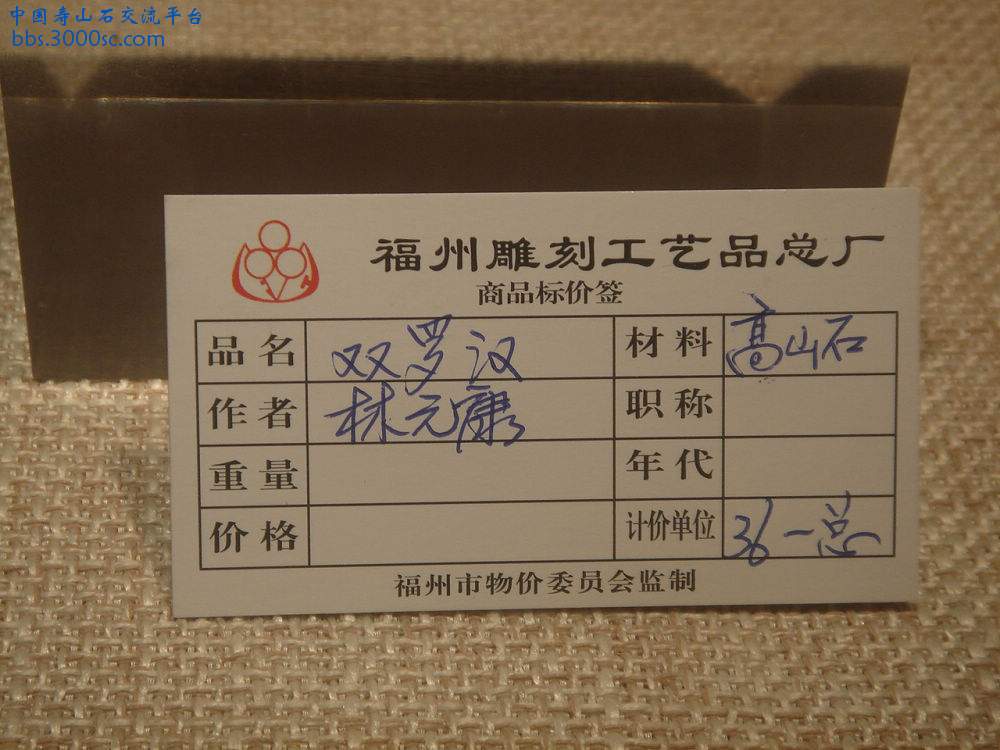 中国寿山石交流平台
bbs.3000sc.com
福州雕刻工艺品总厂
商品标价签
品名 双罗汉 材料 高山石
作者 林元康 职称
重量 年代
价格 计价单位 36-总
福州市物价委员会监制